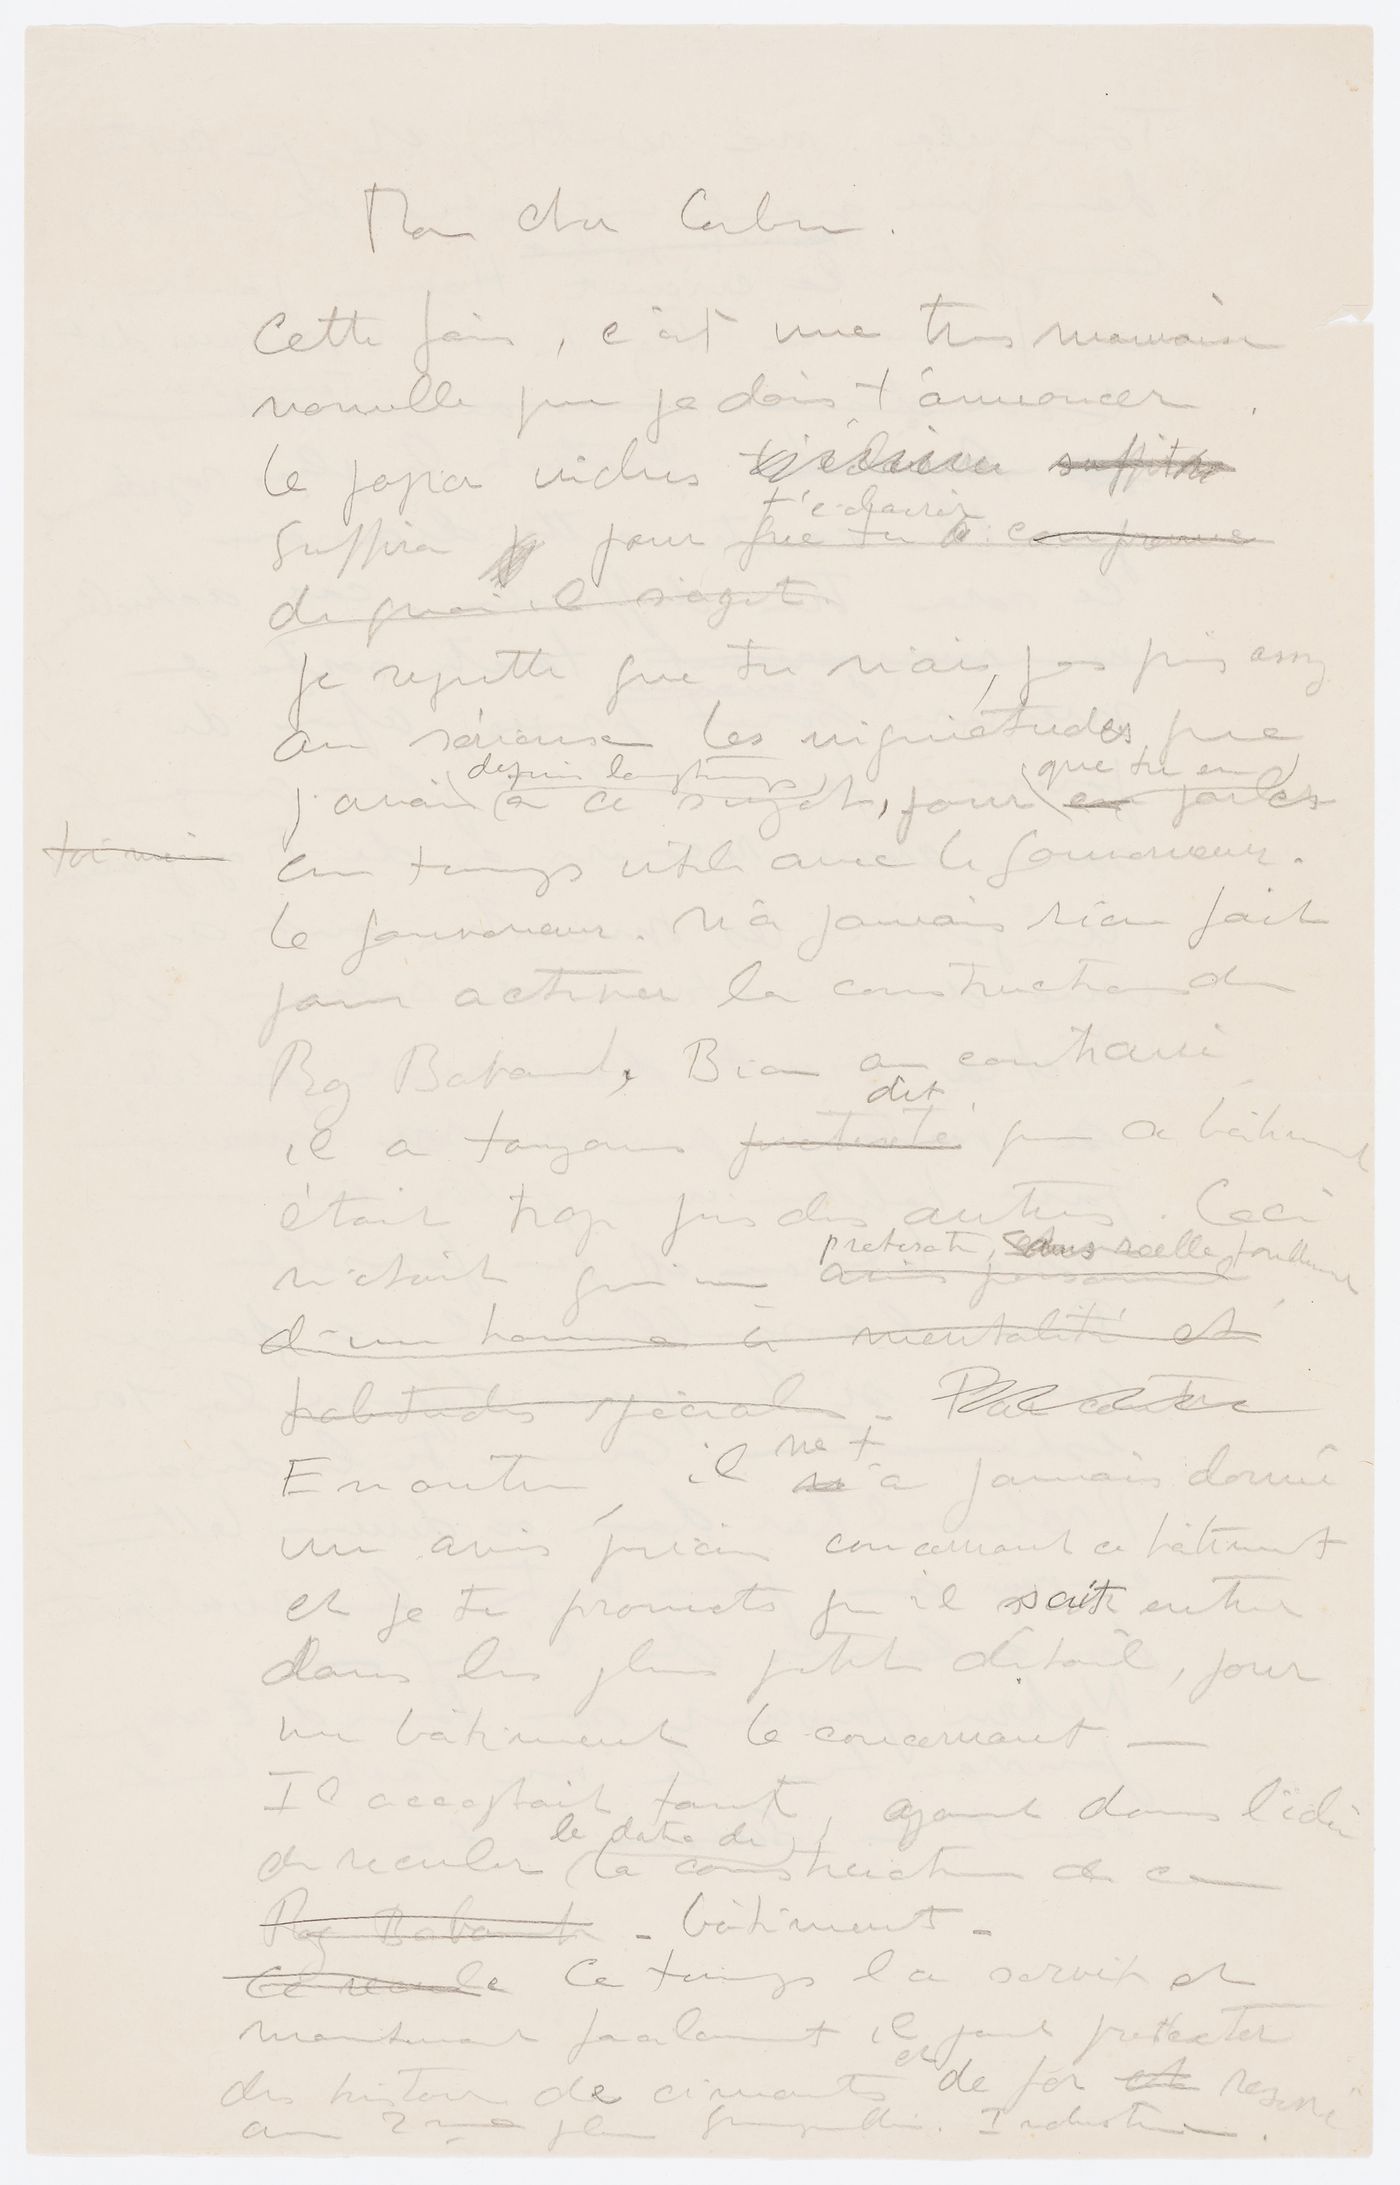 Mon cher Corbu.
Cette fois, c'est une très mauvaise
nouvelle que je dois t'annoncer.
Le papier inclus t'éclairera suffira
t'éclaircir
suffira pour que tu comprennes
de quoi il s'agit.
Je regrette que tu n'aies pas pris assez
au sérieux les inquiétudes que
depuis longtemps que tu en
j'avais à ce sujet, pour en parles
toi-même en temps utile avec le Gouverneur.
Le Gouverneur n'a jamais rien fait
pour activer la construction du
Raj Bavan, Bien au contraire
dit
il a toujours prétexté que ce bâtiment
était trop près des autres. Ceci
prétexte, sans réelle
n'était qu'un avis personnel
d'un homme à mentalité et
habitudes spéciales. Par contre
ne t
En outre, il m'a jamais donné
un avis précis concernant ce bâtiment
et je te promets qu'il sait entrer
dans les plus petits détails, pour
un bâtiment le concernant —
Il acceptait tout, ayant dans l'idée
la date de
de reculer la construction de ce
Raj Bavan - bâtiment -
Ce recule Ce temps l'a servit et
maintenant facilement il peut prétexter
et
des histoires de ciments de fer et réservé
au 2me plan quinquennal. Industrie.